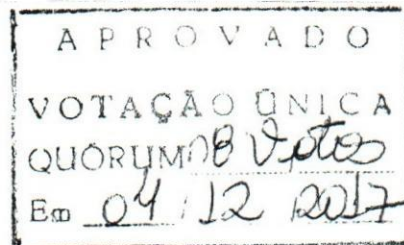 APROVADO
VOTAÇÃO ÚNICA
QUÓRUM 08 Votos
Em 04 / 12 / 2017